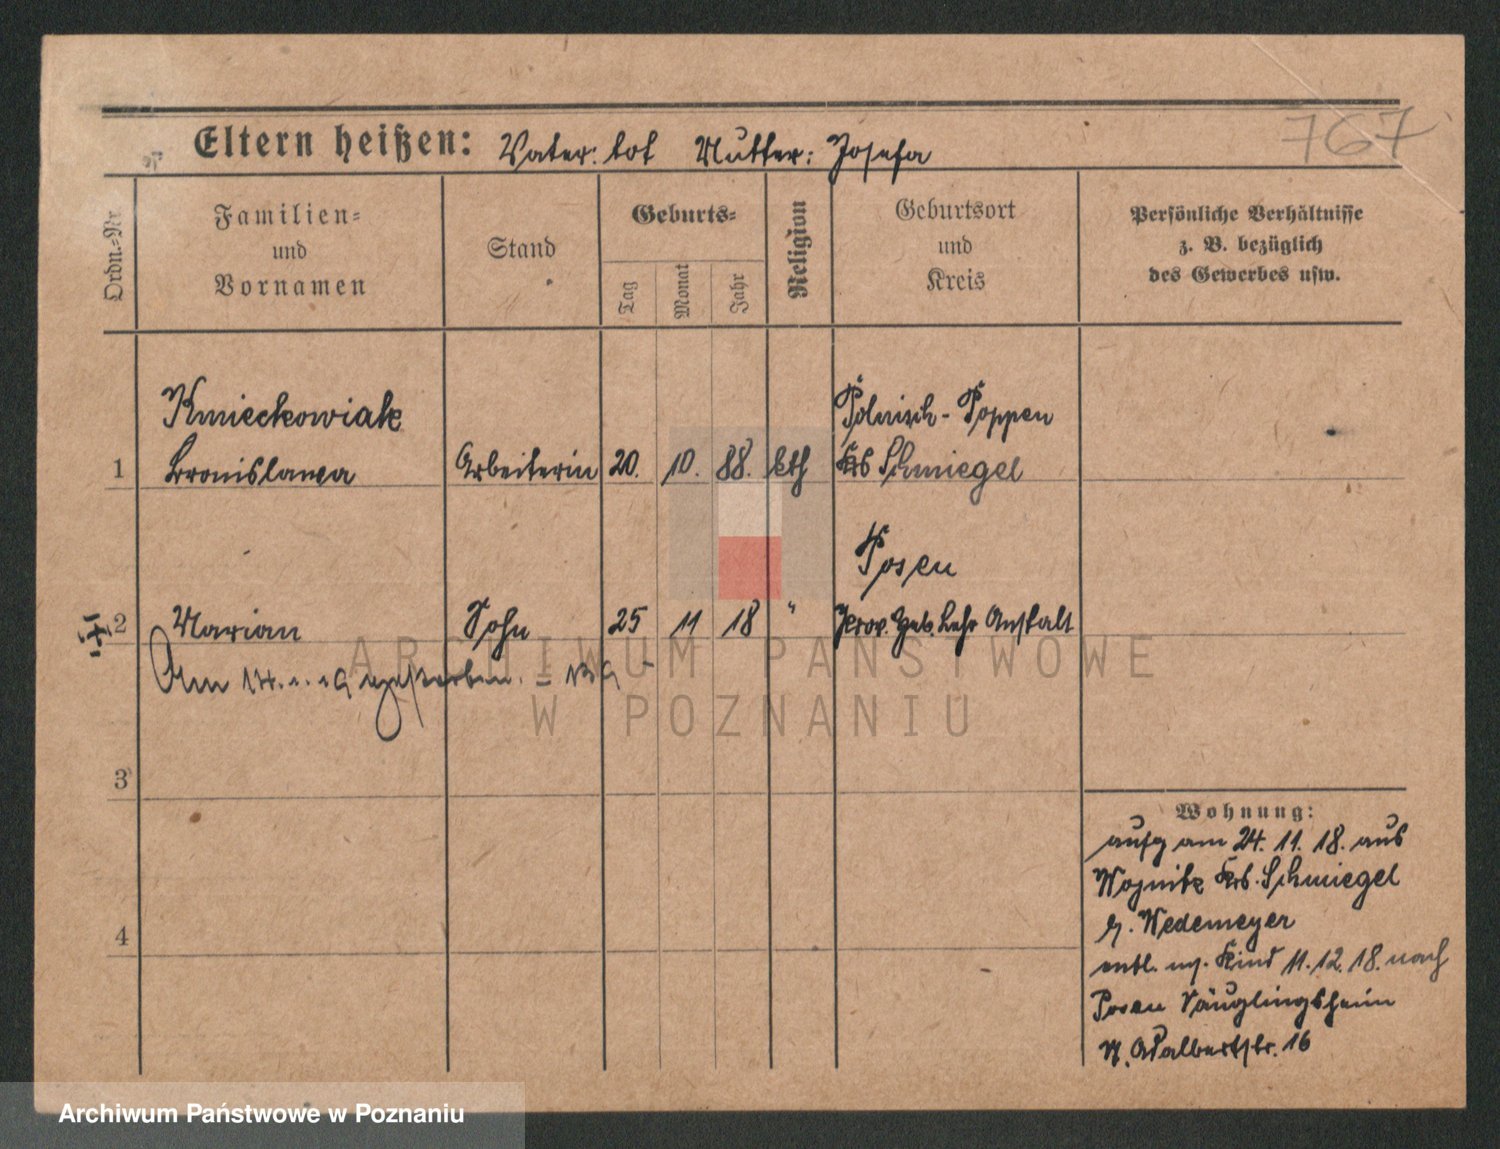 767
Eltern heißen: Vater: tot Mutter: Josefa
Ordn.=Nr.
Familien=
und
Vornamen
Stand
Geburts=
Tag
Monat
Jahr
Religion
Geburtsort
und
Kreis
Persönliche Verhältnisse
z. B. bezüglich
des Gewerbes usw.
Kmieckowiak
Polnisch-Poppen
1 Bronislawa Arbeiterin 20. 10. 88. kth Krs Schmiegel
Posen
2 Marian Sohn 25 11 18 " Prov. Heb. Lehr Anstalt
Am gestorben.
3
Wohnung:
aufg am 24. 11. 18. aus
Wojnitz Krs. Schmiegel
b. Wedemeyer
entl. m. Kind 11. 12. 18. nach
4
Posen Säuglingsheim
N. Adalbertstr. 16
ARCHIWUM PAŃSTWOWE
W POZNANIU
Archiwum Państwowe w Poznaniu